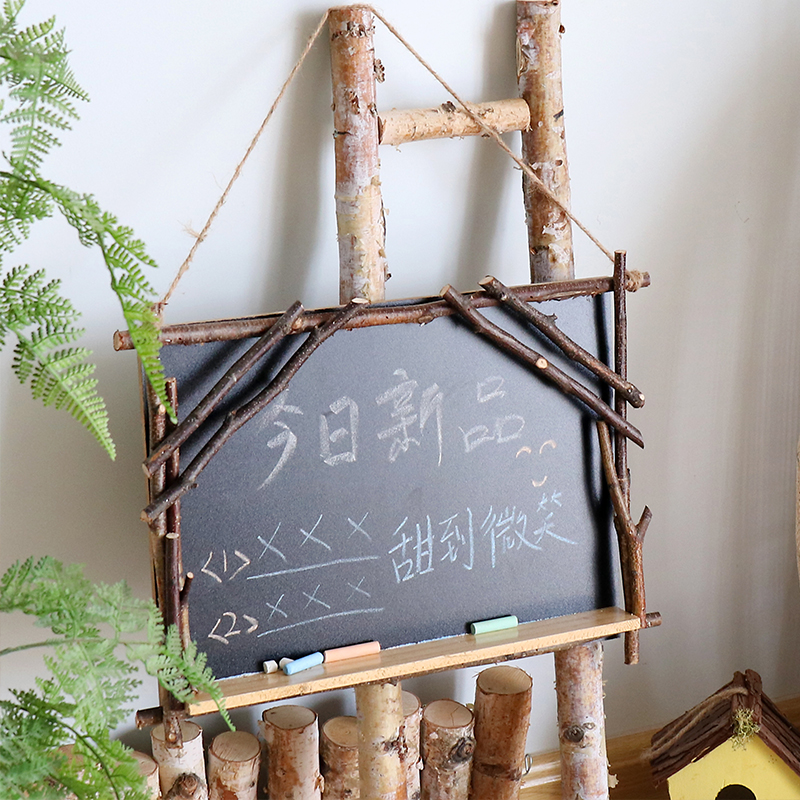 今日新品
<1> ××× 甜到微笑
<2> ×××